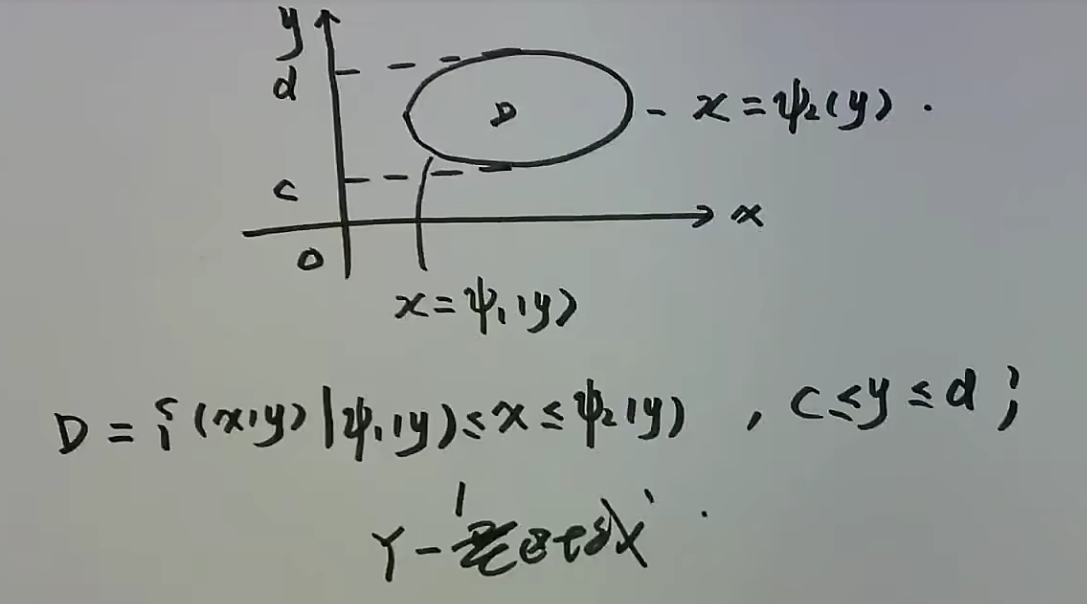 y
d
D
x=ψ₂(y).
c
x
0
x=ψ₁(y)
D={(x,y)|ψ₁(y)≤x≤ψ₂(y), c≤y≤d}
Y-